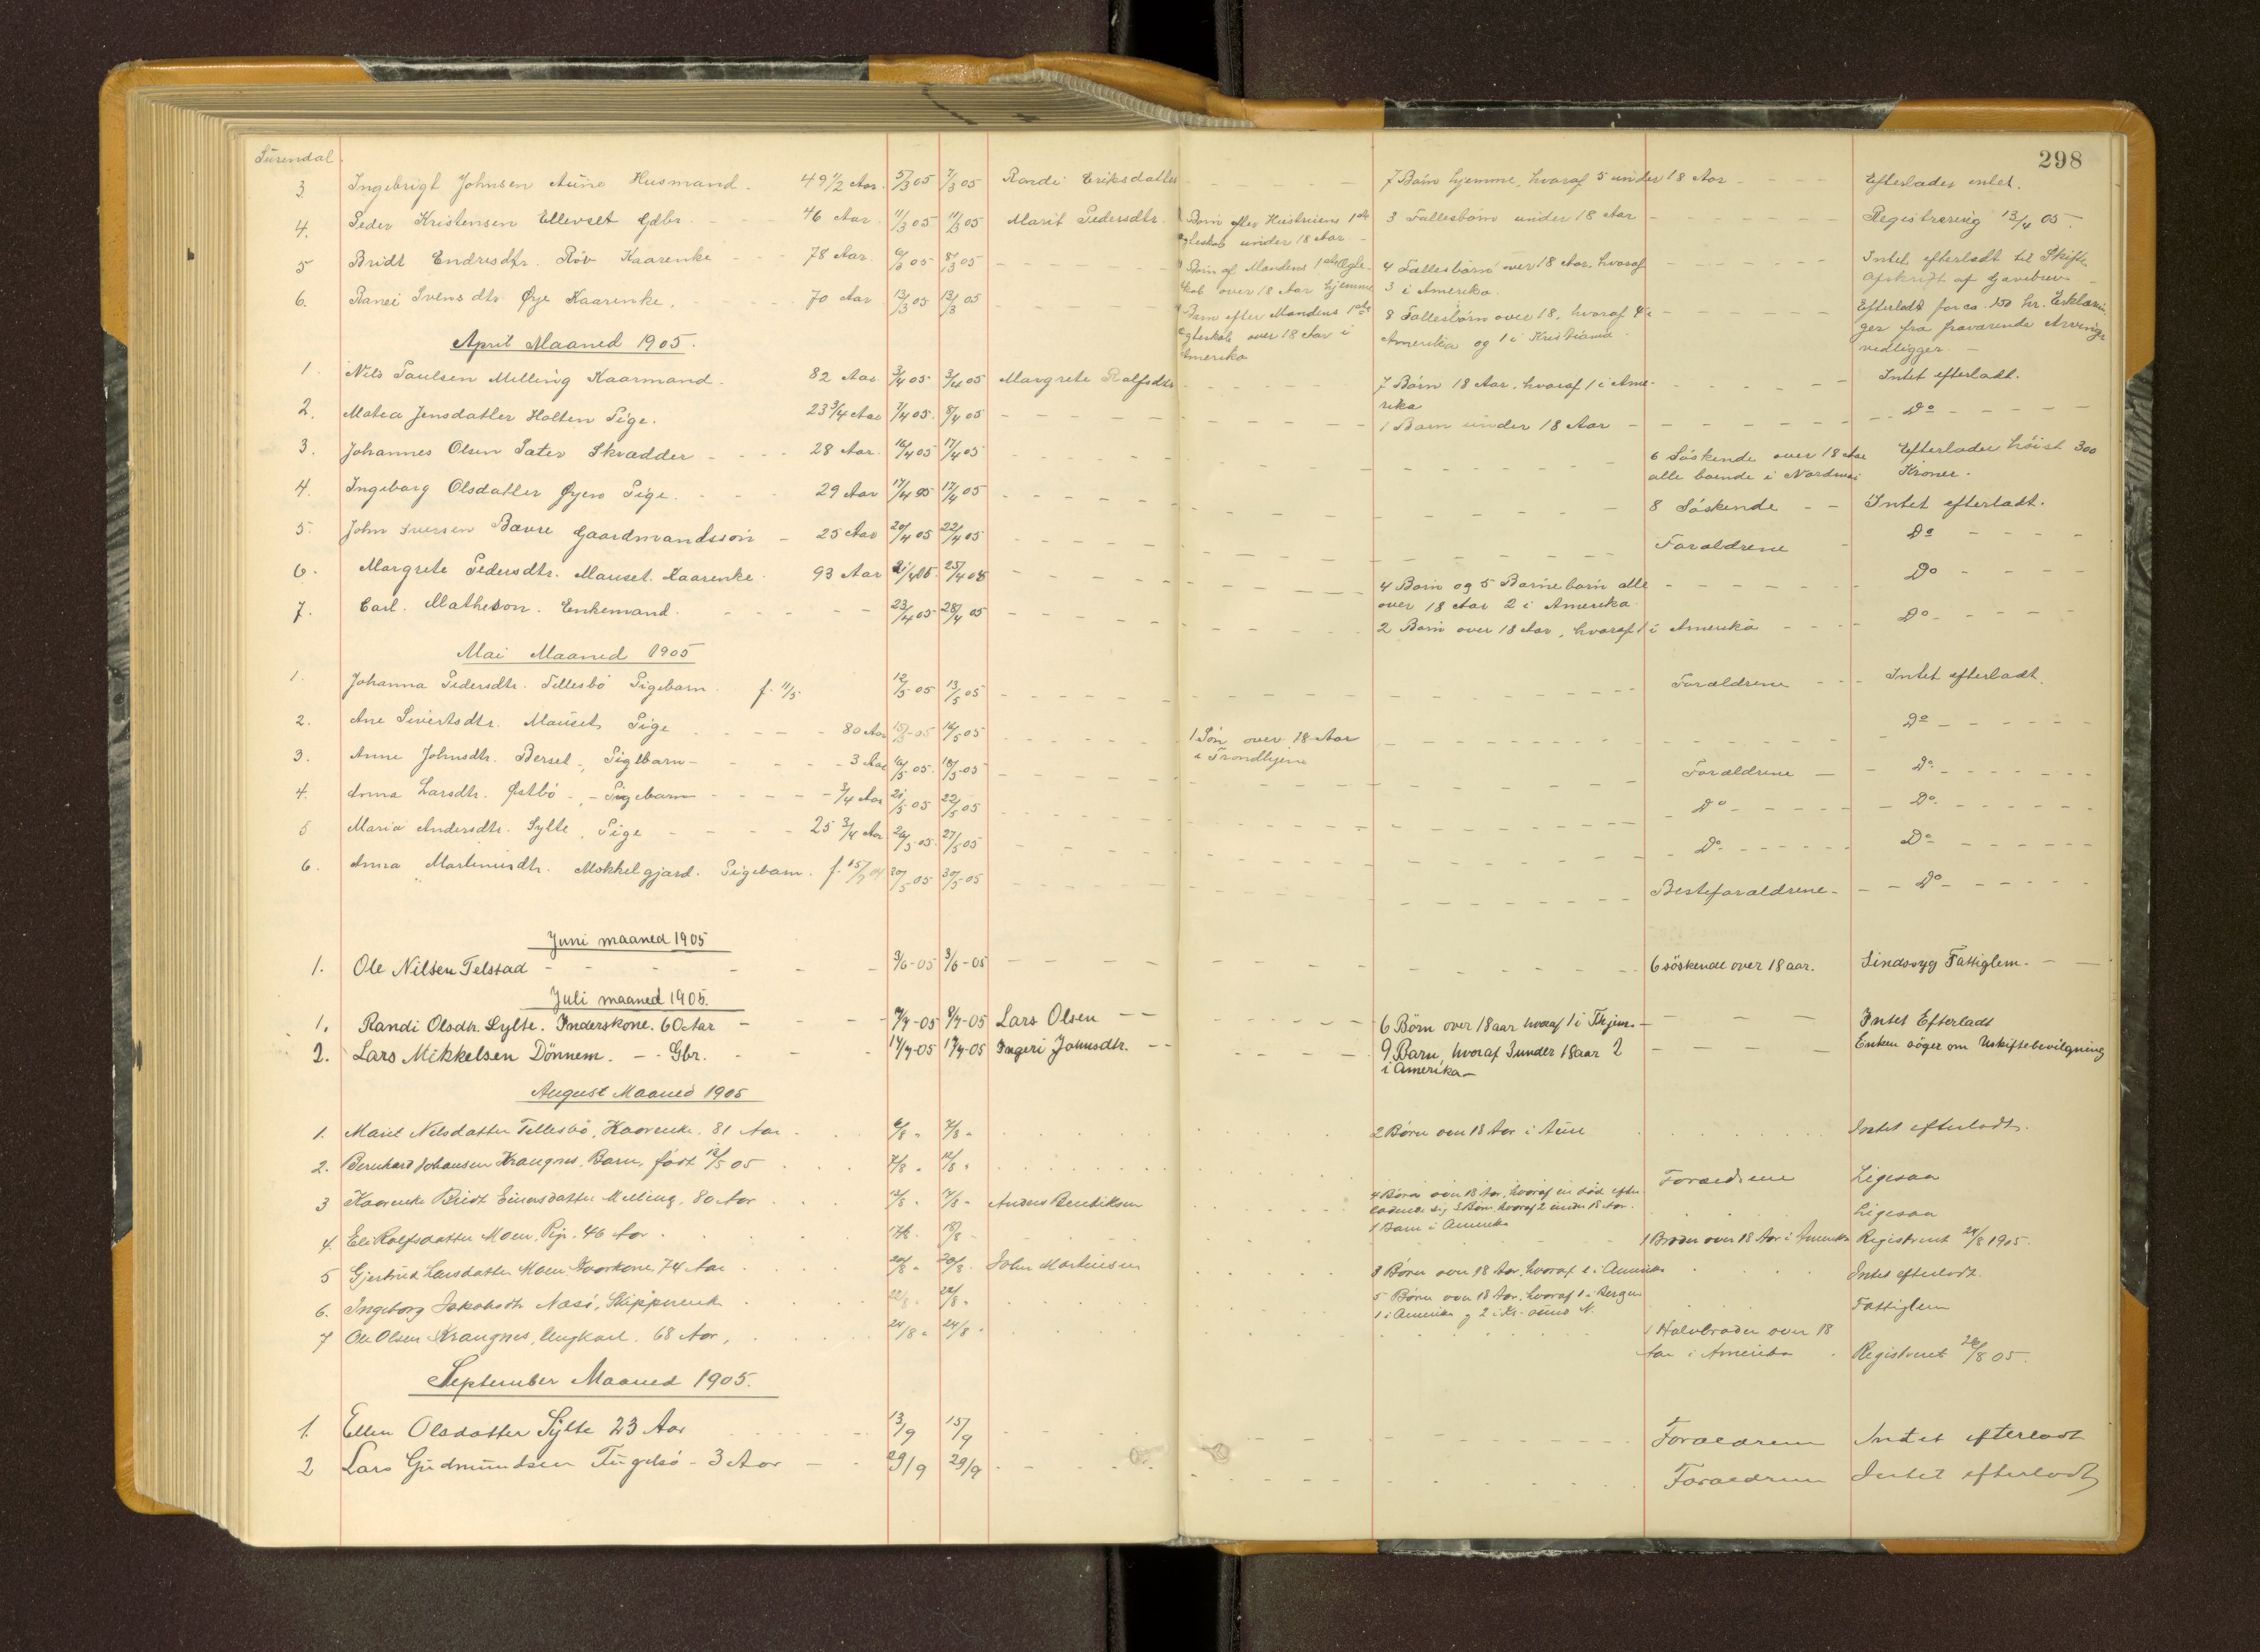 298
Surendal
3 Ingebrigt Johnsen Aune Husmand. 49 1/2 Aar. 5/3 05 7/3 05 Randi Eriksdatter 7 Børn hjemme, hvoraf 5 under 18 Aar Efterlader intet.
4. Peder Kristensen Ellevset Gdbr. 46 Aar 11/3 05 11/3 05 Marit Pedersdtr. Børn efter Hustruens 1ste 3 Fællesbørn under 18 Aar Registrering 13/4 05.
egteskab under 18 Aar
5 Bridt Endresdtr. Røv Kaarenke 78 Aar. 6/3 05 8/3 05 Børn af Mandens 1ste Ægte- 4 Fællesbørn over 18 Aar, hvoraf Intet efterladt til Skifte
skab over 18 Aar hjemme 3 i Amerika. Afskrift af Gavebrev
6. Ranei Ivensdtr Øye Kaarenke. 70 Aar 13/3 05 13/3 05 Barn efter Mandens 1ste 8 Fællesbørn over 18, hvoraf 4 i Efterladt for ca. 150 kr. Erklærin-
egteskab over 18 Aar i Amerika og 1 i Kristiania ger fra fraværende Arvinger
Amerika vedligger.
April Maaned 1905.
1. Nils Paulsen Melling Kaarmand. 82 Aar 3/4 05 3/4 05 Margrete Rolfsdtr 7 Børn 18 Aar, hvoraf 1 i Ame- Intet efterladt.
rika
2. Matea Jensdatter Holten Pige. 23 3/4 Aar 7/4 05. 8/4 05 1 Barn under 18 Aar Do
3. Johannes Olsen Sæter Skrædder 28 Aar. 16/4 05 17/4 05 6 Söskende over 18 Aar Efterlader höist 300
alle boende i Nordmøi Kroner.
4. Ingeborg Olsdatter Øyen Pige. 29 Aar 17/4 05 17/4 05 8 Söskende Intet efterladt.
5. John Iversen Bævre Gaardmandssön 25 Aar 20/4 05 22/4 05 Forældrene Do
6. Margrete Pedersdtr. Mauset. Kaarenke. 93 Aar 21/4 05. 25/4 05 4 Børn og 5 Barnebarn alle Do
over 18 Aar 2 i Amerika.
7. Carl. Matheson. Enkemand. 23/4 05 28/4 05 2 Børn over 18 Aar, hvoraf 1 i Amerika Do
Mai Maaned 1905
1. Johanna Pedersdtr. Tellesbø Pigebarn. f. 11/5 12/5 05 13/5 05 Forældrene Intet efterladt.
2. Ane Sivertsdtr. Mauset Pige 80 Aar 15/5-05 16/5 05 1 Søn over 18 Aar Do
i Trondhjem
3. Anne Johnsdtr. Bersel Pigebarn 3 Aar 16/5 05. 18/5-05 Forældrene Do
4. Anna Larsdtr. Østbö Pigebarn 3/4 Aar 21/5 05 22/5 05 Do Do
5 Maria Andersdtr. Sylte, Pige 25 3/4 Aar 26/5-05. 27/5-05 Do Do
6. Anna Martinusdtr. Mokkelgjard. Pigebarn. f. 15/7 04 30/5-05 30/5-05 Besteforældrene Do
Juni maaned 1905
1. Ole Nilsen Telstad 3/6-05 3/6-05 6 søskende over 18 aar. Sindssyg Fattiglem.
Juli maaned 1905.
1. Randi Olsdtr. Sylte. Inderskone. 60 Aar 7/7-05 8/7-05 Lars Olsen 6 Børn over 18 aar hvoraf 1 i Thjem. Intet Efterladt
2. Lars Mikkelsen Dönnem. Gbr. 17/7-05 17/7-05 Ingeri Johnsdtr. 9 Barn, hvoraf 3 under 18 aar 2 Enken söger om Uskiftebevilgning
i Amerika
August Maaned 1905
1. Marit Nilsdatter Tellesbö, Kaarenke. 81 Aar 6/8 " 7/8 " 2 Børn over 18 Aar i Aure Intet efterladt.
2. Bernhard Johansen Krangnes, Barn, født 12/5 05 7/8 " 12/8 " Forældrene Ligesaa
3 Kaarenke Bridt Einarsdatter Melling, 80 Aar 12/8 " 17/8 " Anders Bendiksen 4 Børn over 18 Aar, hvoraf en död efter
ladende sig 3 Børn, hvoraf 2 under 18 Aar. Ligesaa
1 Barn i Amerika
4. Eli Rolfsdatter Moen, Pige. 46 Aar 18/8 1 Broder over 18 Aar i Amerika Registreret 24/8 1905.
5 Gjertrud Larsdatter Moen, Kaarkone, 74 Aar 20/8 " 20/8. John Martinsen 8 Børn over 18 Aar, hvoraf 2 i Amerika Intet efterladt.
6. Ingeborg Jakobsdtr Næsi, Skipperenk 22/8 " 22/8 " 5 Børn over 18 Aar, hvoraf 1 i Bergen Fattiglem
1 i Amerika og 2 i Kr.sund N.
7 Ole Olsen Krangnes, Ungkarl. 68 Aar, 24/8 " 24/8 " 1 Halvbroder over 18
Aar i Amerika Registreret 26/8 05.
September Maaned 1905.
1. Ellen Olsdatter Sylte 23 Aar 13/9 15/9 Forældrene Intet efterladt
2 Lars Gudmundsen Fugelsö - 3 Aar 29/9 29/9 Forældrene Intet efterladt